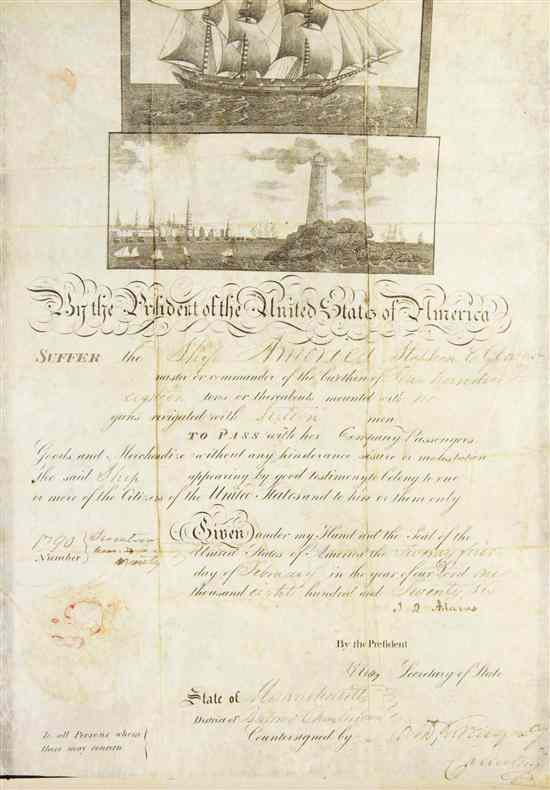 By the President of the United States of America
SUFFER the Ship America
master or commander of the burthen of
tons or thereabouts mounted with no
guns navigated with Sixteen men
TO PASS with her Company Passengers
Goods and Merchandize without any hinderance seisure or molestation
the said Ship appearing by good testimony to belong to one
or more of the Citizens of the United States and to him or them only
Given under my Hand and the Seal of the
United States of America the
day of February in the year of our Lord one
thousand eight hundred and Twenty Six
Number
J. Q. Adams
By the President
H Clay Secretary of State
State of Massachusetts
District of
Countersigned by
To all Persons whom
these may concern